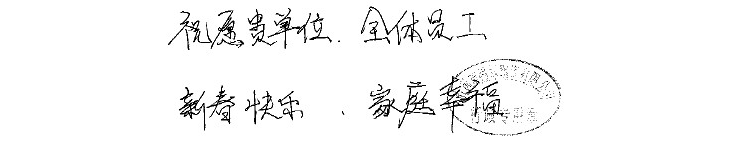 祝愿贵单位、全体员工
新春快乐、家庭幸福